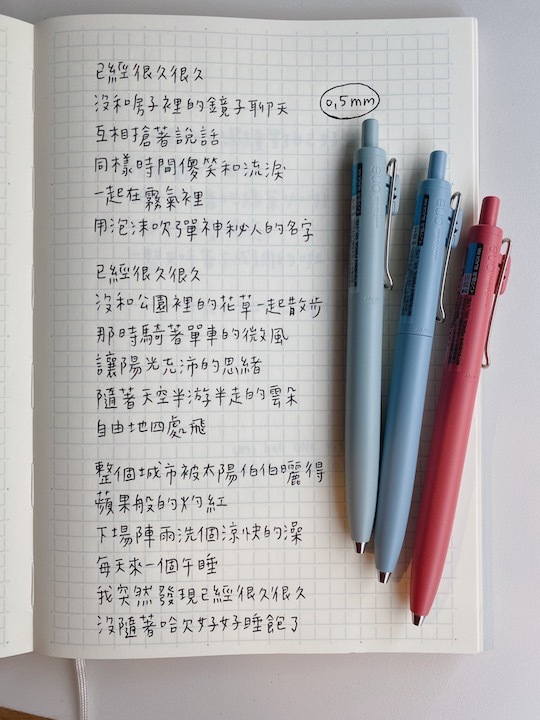 已經很久很久
沒和房子裡的鏡子聊天
互相搶著說話
同樣時間傻笑和流淚
一起在霧氣裡
用泡沫吹彈神秘人的名字
已經很久很久
沒和公園裡的花草一起散步
那時騎著單車的微風
讓陽光充沛的思緒
隨著天空半游半走的雲朵
自由地四處飛
整個城市被太陽伯伯曬得
蘋果般的灼紅
下場陣雨洗個涼快的澡
每天來一個午睡
我突然發現已經很久很久
沒隨著哈欠好好睡飽了
0.5mm
uni
one